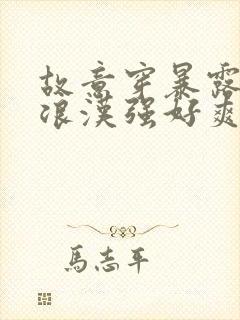 故意穿暴露
浪漢强好爽
馬志平